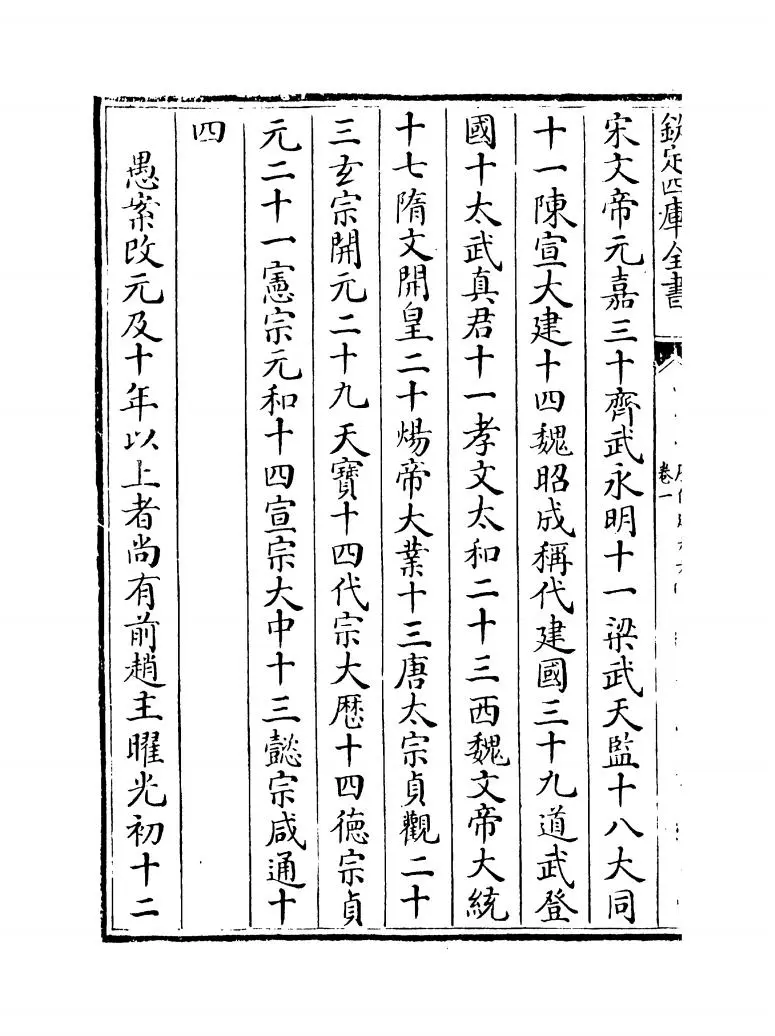 欽定四庫全書
卷一
宋文帝元嘉三十齊武永明十一梁武天監十八大同
十一陳宣大建十四魏昭成稱代建國三十九道武登
國十太武真君十一孝文太和二十三西魏文帝大統
十七隋文開皇二十煬帝大業十三唐太宗貞觀二十
三玄宗開元二十九天寶十四代宗大厯十四徳宗貞
元二十一憲宗元和十四宣宗大中十三懿宗咸通十
四
愚案改元及十年以上者尚有前趙主曜光初十二